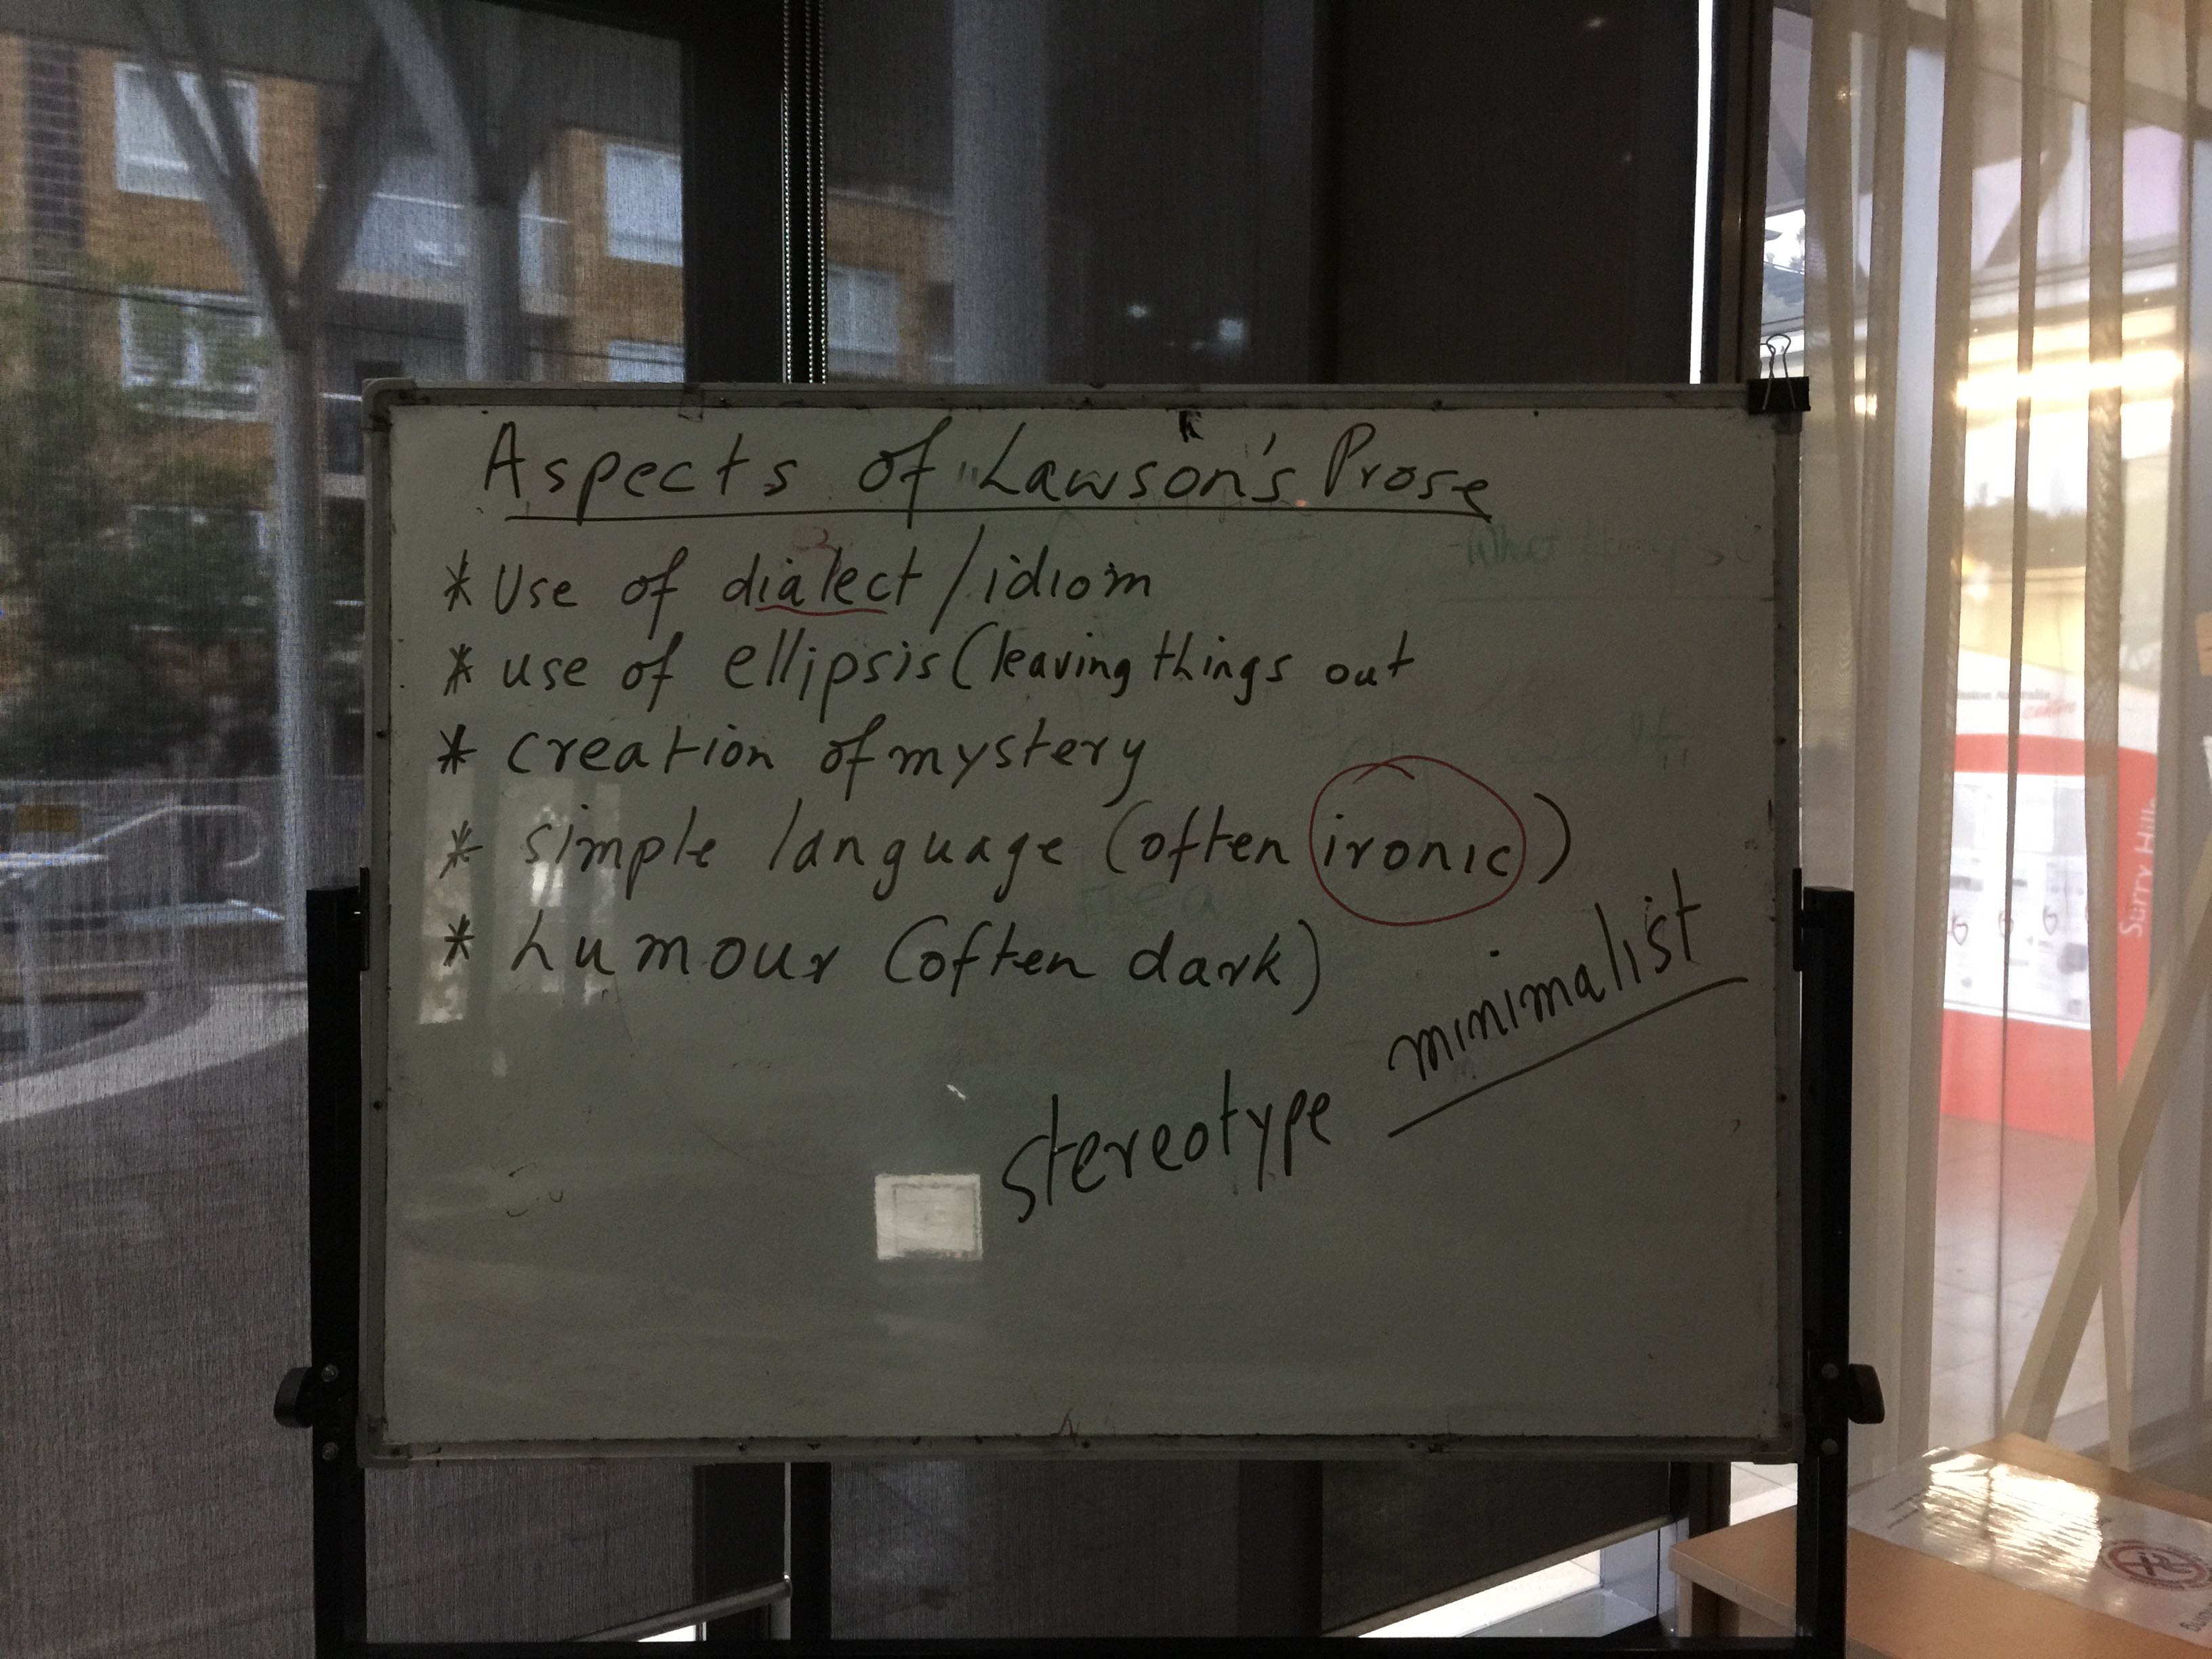 Aspects of Lawson's Prose
* Use of dialect / idiom
* use of ellipsis (leaving things out
* creation of mystery
* simple language (often ironic)
* humour (often dark)
minimalist
stereotype
Surry Hills